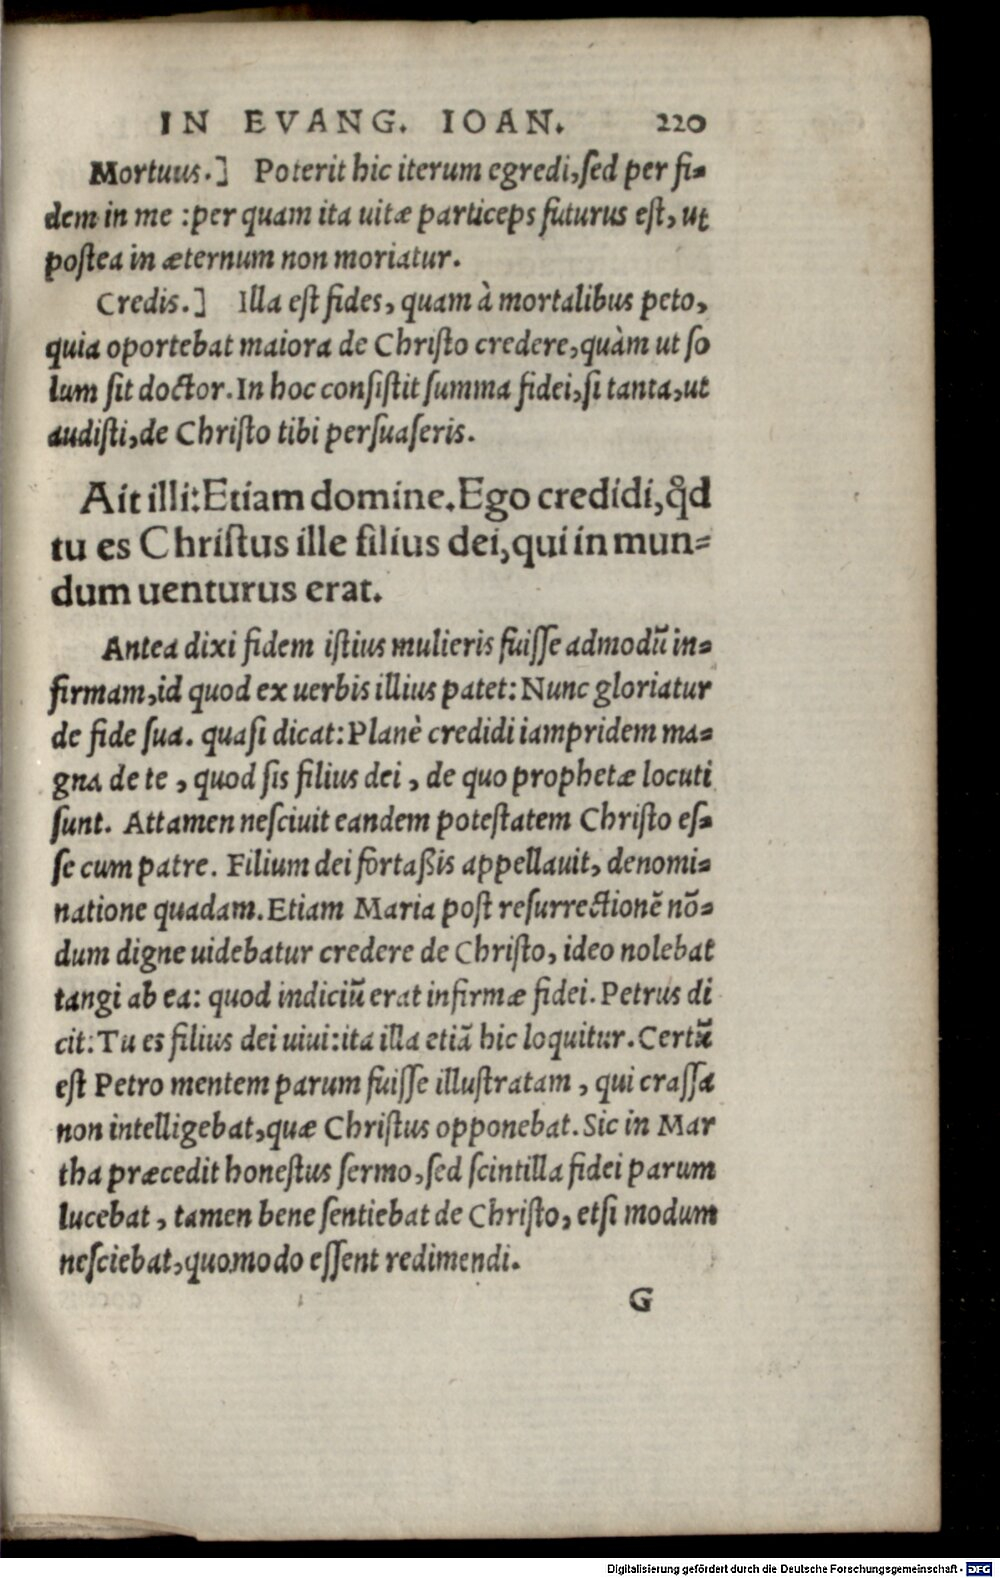 IN EVANG. IOAN. 220
Mortuus.] Poterit hic iterum egredi, sed per fi-
dem in me : per quam ita uitæ particeps futurus est, ut
postea in æternum non moriatur.
Credis.] Illa est fides, quam à mortalibus peto,
quia oportebat maiora de Christo credere, quàm ut so
lum sit doctor. In hoc consistit summa fidei, si tanta, ut
audisti, de Christo tibi persuaseris.
Ait illi: Etiam domine. Ego credidi, qđ
tu es Christus ille filius dei, qui in mun-
dum uenturus erat.
Antea dixi fidem istius mulieris fuisse admodũ in-
firmam, id quod ex uerbis illius patet: Nunc gloriatur
de fide sua. quasi dicat: Planè credidi iampridem ma-
gna de te, quod sis filius dei, de quo prophetæ locuti
sunt. Attamen nesciuit eandem potestatem Christo es-
se cum patre. Filium dei fortaßis appellauit, denomi-
natione quadam. Etiam Maria post resurrectionẽ nõ-
dum digne uidebatur credere de Christo, ideo nolebat
tangi ab ea: quod indiciũ erat infirmæ fidei. Petrus di
cit: Tu es filius dei uiui: ita illa etiã hic loquitur. Certũ
est Petro mentem parum fuisse illustratam, qui crassa
non intelligebat, quæ Christus opponebat. Sic in Mar
tha præcedit honestus sermo, sed scintilla fidei parum
lucebat, tamen bene sentiebat de Christo, etsi modum
nesciebat, quomodo essent redimendi.
G
Digitalisierung gefördert durch die Deutsche Forschungsgemeinschaft - DFG